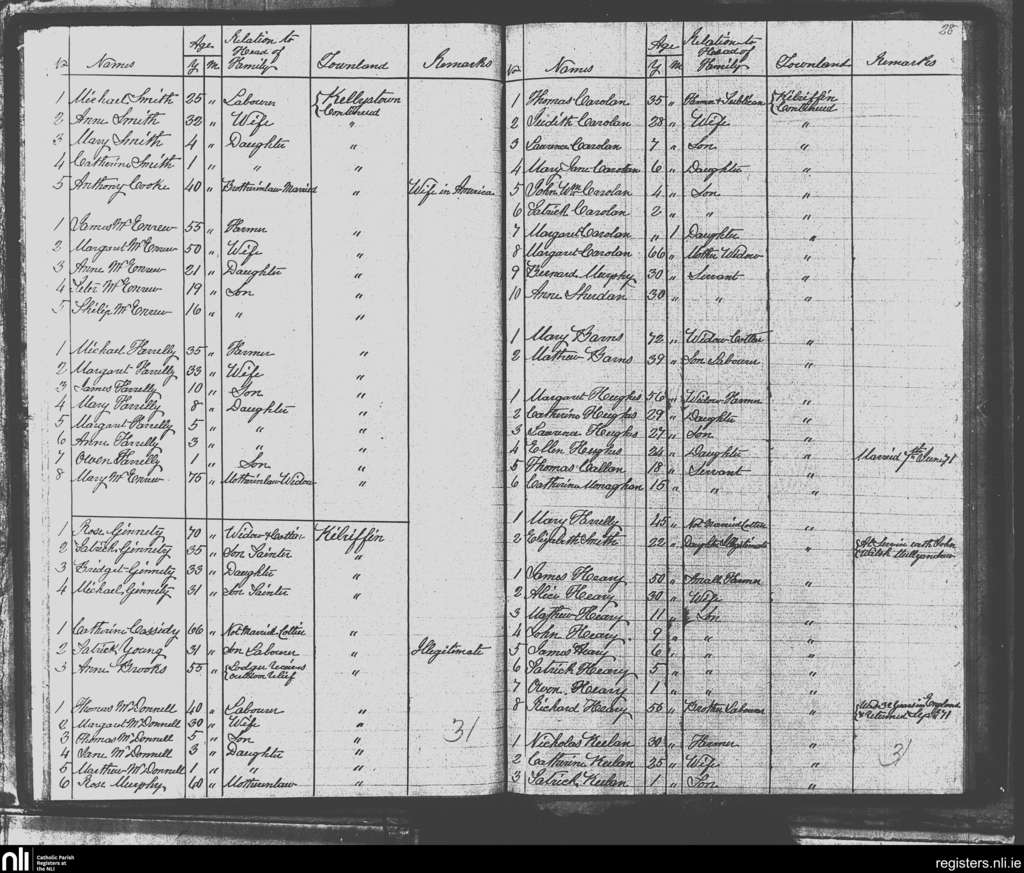 28
No Names Age Y M Relation to Head of Family Townland Remarks
1 Michael Smith 25 " Labourer {Kellystown Continued
2 Anne Smith 32 " Wife "
3 Mary Smith 4 " Daughter "
4 Catherine Smith 1 " " "
5 Anthony Cooke 40 " Brotherinlaw Married " Wife in America
1 James McEnrew 55 " Farmer "
2 Margaret McEnrew 50 " Wife "
3 Anne McEnrew 21 " Daughter "
4 Peter McEnrew 19 " Son "
5 Philip McEnrew 16 " " "
1 Michael Farrelly 35 " Farmer "
2 Margaret Farrelly 33 " Wife "
3 James Farrelly 10 " Son "
4 Mary Farrelly 8 " Daughter "
5 Margaret Farrelly 5 " " "
6 Anne Farrelly 3 " " "
7 Owen Farrelly 1 " Son "
8 Mary McEnrew 75 " Motherinlaw Widow "
1 Rose Ginnety 70 " Widow & Cottier Kilriffin
2 Patrick Ginnety 35 " Son Painter "
3 Bridget Ginnety 33 " Daughter "
4 Michael Ginnety 31 " Son Painter "
1 Catherine Cassidy 66 " Not Married Cottier "
2 Patrick Young 31 " Son Labourer " Illegitimate
3 Anne Brooks 55 " {Lodger receives outdoor relief "
1 Thomas McDonnell 40 " Labourer "
2 Margaret McDonnell 30 " Wife "
3 Thomas McDonnell 5 " Son "
4 Jane McDonnell 3 " Daughter "
5 Matthew McDonnell 1 " " "
6 Rose Murphy 60 " Motherinlaw "
31
No Names Age Y M Relation to Head of Family Townland Remarks
1 Thomas Carolan 35 " Farmer & Publican {Kilriffin Continued
2 Judith Carolan 28 " Wife "
3 Lawrence Carolan 7 " Son "
4 Mary Jane Carolan 6 " Daughter "
5 John Wm Carolan 4 " Son "
6 Patrick Carolan 2 " " "
7 Margaret Carolan " 1 Daughter "
8 Margaret Carolan 66 " Mother Widow "
9 Bernard Murphy 30 " Servant "
10 Anne Sheridan 30 " " "
1 Mary Barns 72 " Widow Cottier "
2 Mathew Barns 39 " Son Labourer "
1 Margaret Heughs 56 " Widow Farmer "
2 Catherine Heughs 29 " Daughter "
3 Lawrence Heughs 27 " Son "
4 Ellen Heughs 24 " Daughter " Married 7th Jun. 71
5 Thomas Callan 18 " Servant "
6 Catherine Monaghan 15 " " "
1 Mary Farrelly 45 " Not Married Cottier "
2 Elizabeth Smith 22 " Daughter Illegitimate " {At Service with John
1 James Heary 50 " Small Farmer "
2 Alice Heary 30 " Wife "
3 Mathew Heary 11 " Son "
4 John Heary 9 " " "
5 James Heary 6 " " "
6 Patrick Heary 5 " " "
7 Owen Heary 1 " " "
8 Richard Heary 56 " Brother Labourer " Years in England & Returned Sept 71
1 Nicholas Keelan 30 " Farmer "
2 Catherine Keelan 25 " Wife "
3 Patrick Keelan 1 " Son "
31
nli Catholic Parish Registers at the NLI
registers.nli.ie